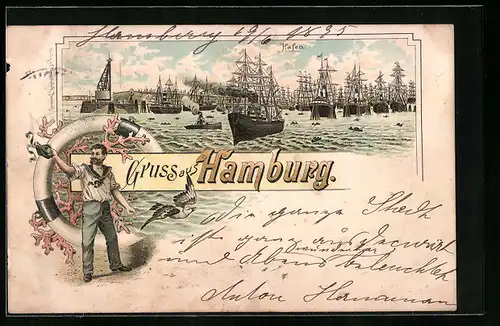 Hamburg 19/6 1895
Hafen
Gruss aus Hamburg.
Die ganze Stadt
ist ganz ausgeziert
wunderbar
und Abens beleuchtet
Anton